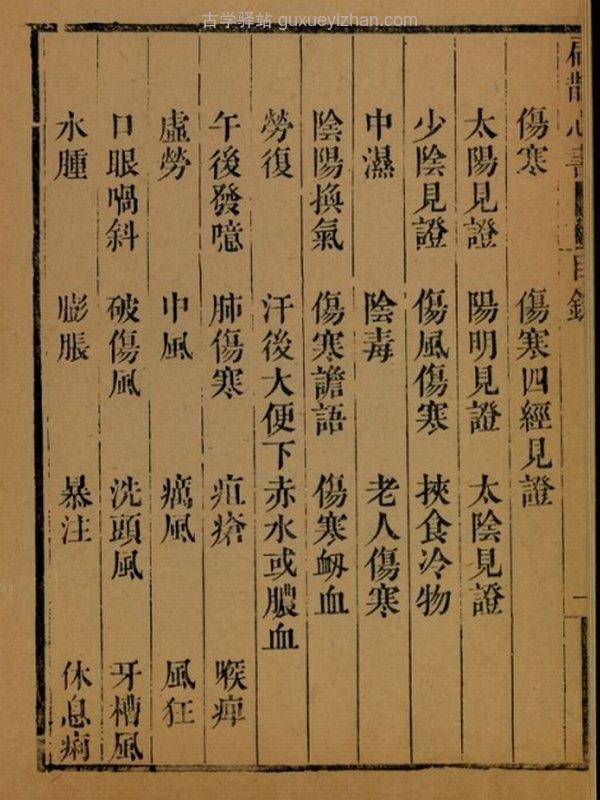 古学驿站 guxueyizhan.com
心書 目錄
傷寒 傷寒四經見證
太陽見證 陽明見證 太陰見證
少陰見證 傷風傷寒 挾食冷物
中濕 陰毒 老人傷寒
陰陽換氣 傷寒譫語 傷寒衂血
勞復 汗後大便下赤水或膿血
午後發噫 肺傷寒 疽瘡 喉痺
虛勞 中風 癘風 風狂
口眼喎斜 破傷風 洗頭風 牙槽風
水腫 膨脹 暴注 休息痢
一